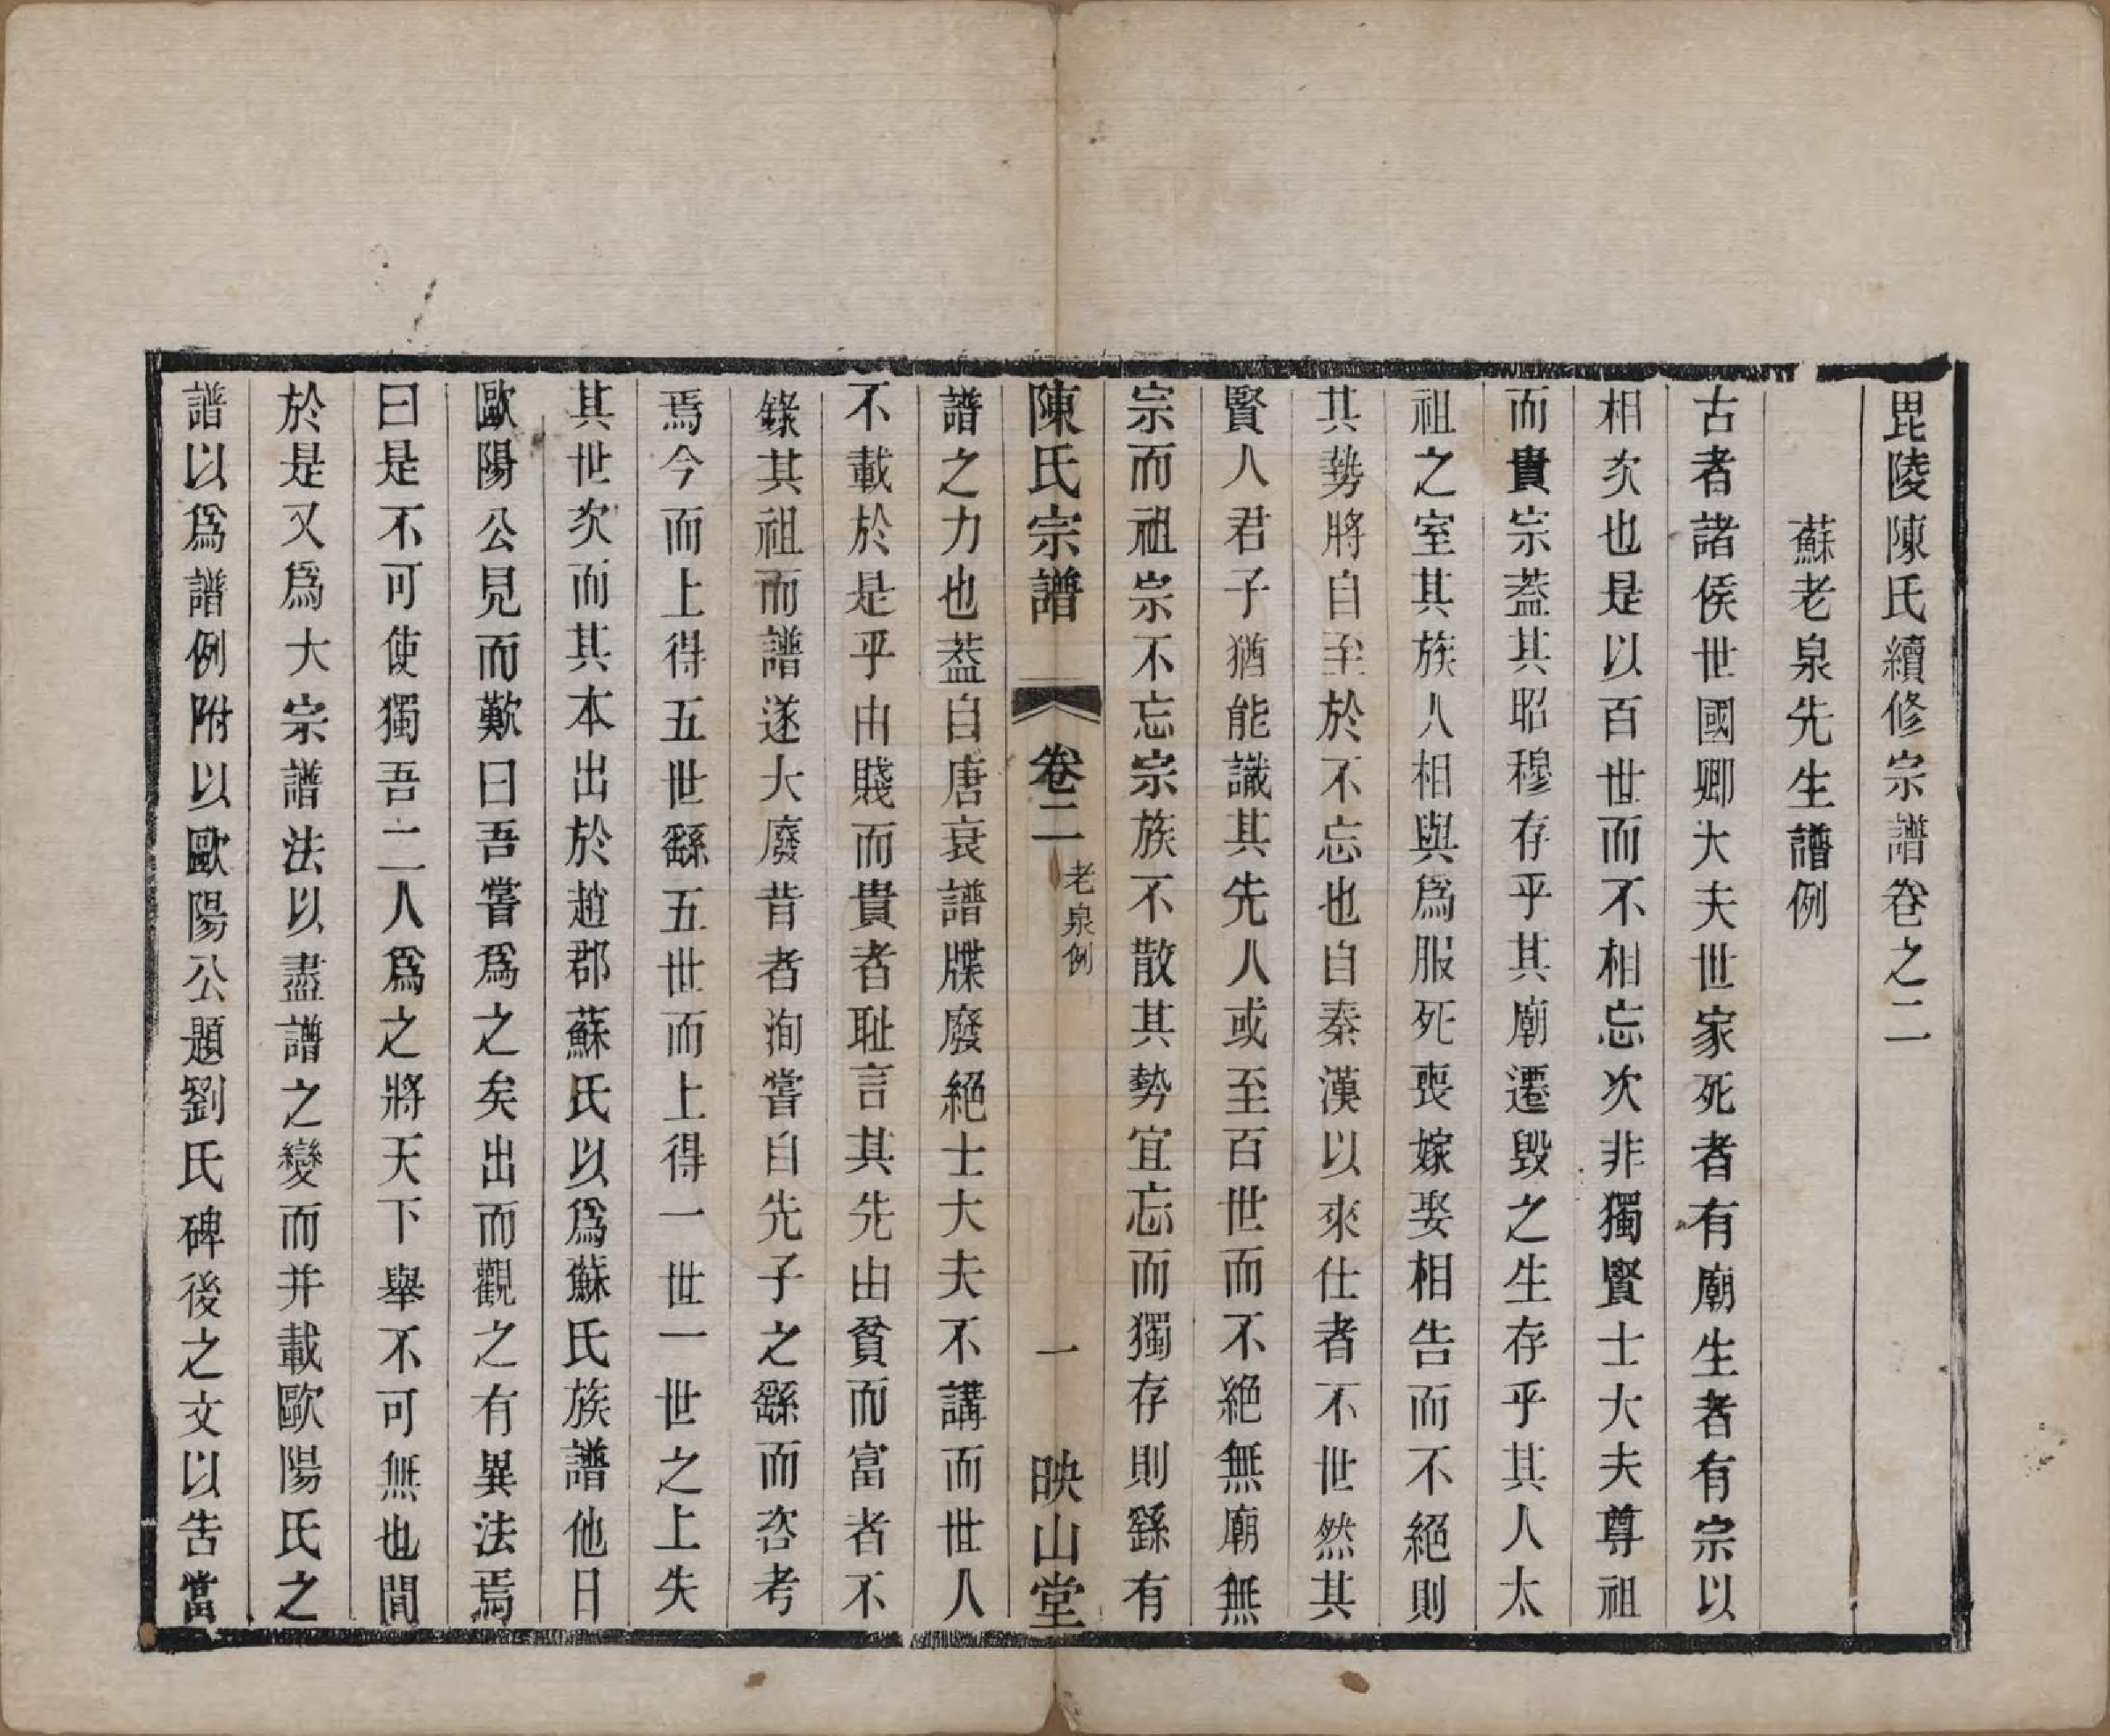 毘陵陳氏續修宗譜卷之二
蘇老泉先生譜例
古者諸侯世國卿大夫世家死者有廟生者有宗以
相次也是以百世而不相忘次非獨賢士大夫尊祖
而貴宗葢其昭穆存乎其廟遷毀之生存乎其人太
祖之室其族人相與爲服死喪嫁娶相告而不絕則
其勢將自至於不忘也自秦漢以來仕者不世然其
賢人君子猶能識其先人或至百世而不絕無廟無
宗而祖宗不忘宗族不散其勢宜忘而獨存則繇有
陳氏宗譜 卷二 老泉例 一 映山堂
譜之力也葢自唐衰譜牒廢絕士大夫不講而世人
不載於是乎由賤而貴者耻言其先由貧而富者不
錄其祖而譜遂大廢昔者洵嘗自先子之繇而咨考
焉今而上得五世繇五世而上得一世一世之上失
其世次而其本出於趙郡蘇氏以爲蘇氏族譜他日
歐陽公見而歎曰吾嘗爲之矣出而觀之有異法焉
曰是不可使獨吾二人爲之將天下舉不可無也閒
於是又爲大宗譜法以盡譜之變而并載歐陽氏之
譜以爲譜例附以歐陽公題劉氏碑後之文以告當